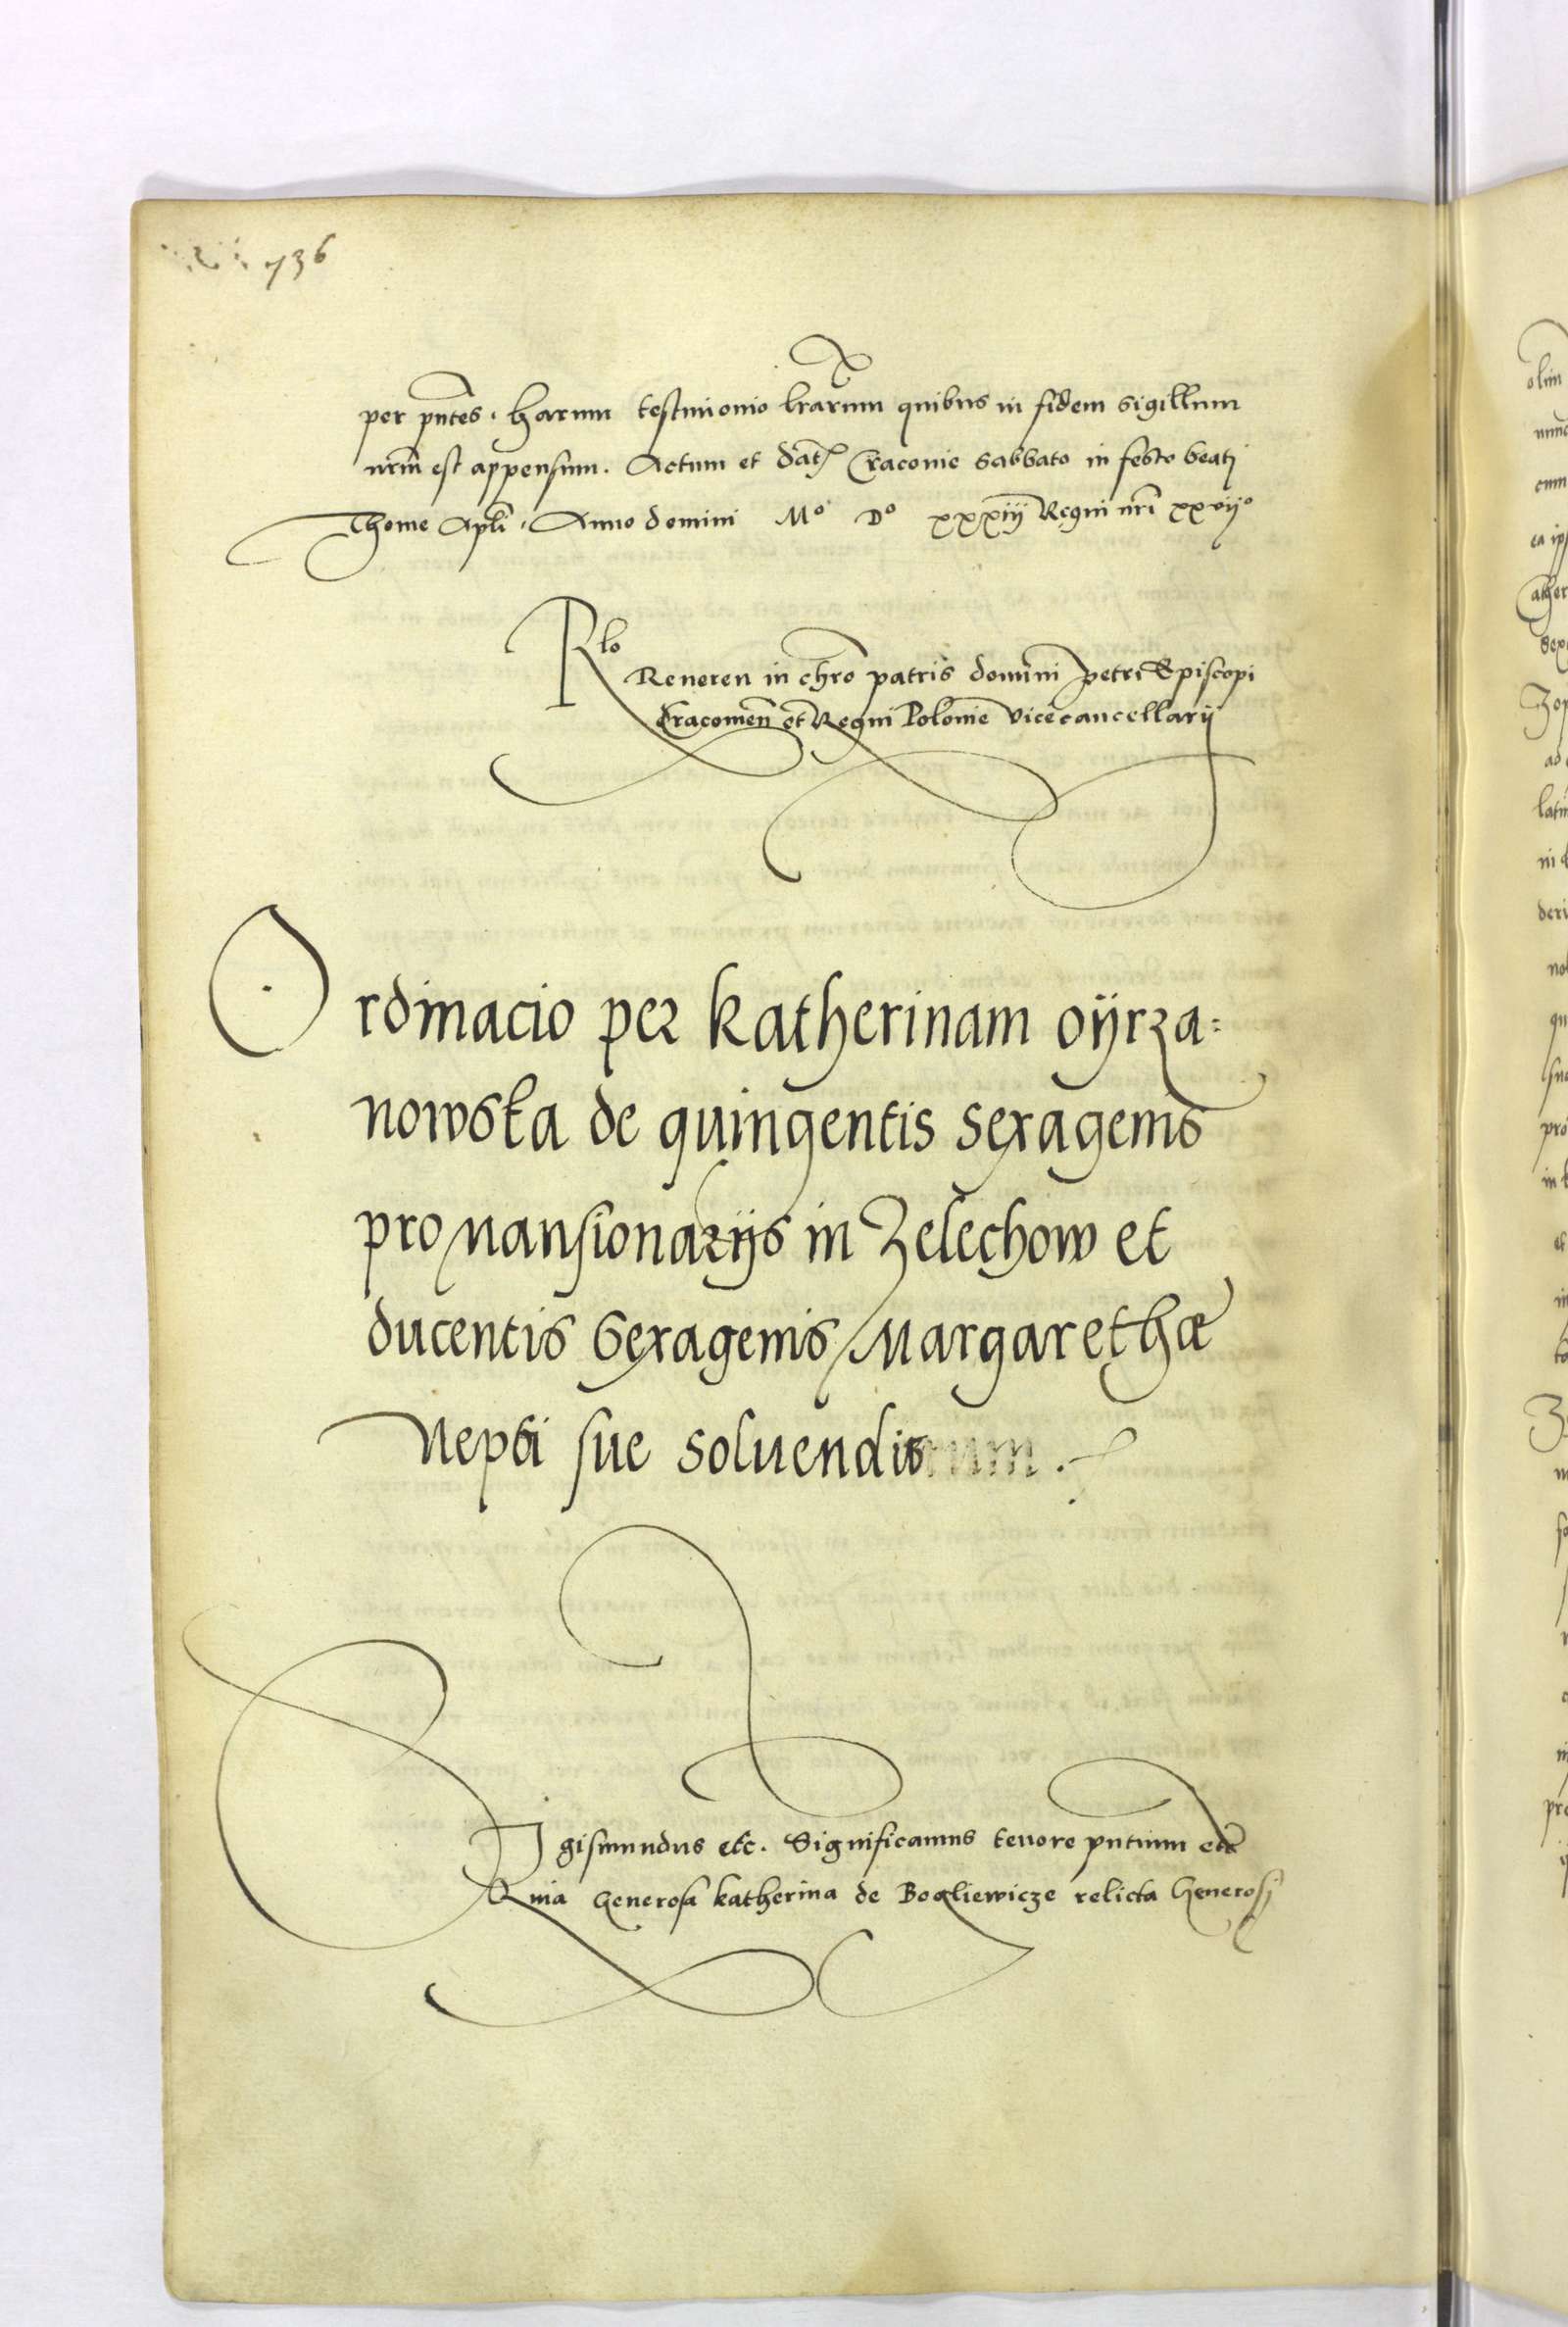 736
per pñtes. Harum testimonio lrarum quibus in fidem sigillum
nrm̃ est appensum. Actum et dat Cracovie Sabbato in festo beatj
Thome Apli, Anno domini Mº Dº xxxiij Regni nrĩ xxvijº
Rlo
Reveren in chro patris domini petri Episcopi
Cracovien̄ et Regni Polonie Vicecancellarij
Ordinacio per Katherinam Oÿrza:
nowska de quingentis sexagenis
pro Mansionarijs in Zelechow et
ducentis Sexagenis Margarethæ
Nepti sue solvendis.
Sigismundus etc. Significamus tenore pntium etc
Quia Generosa Katherina de Bogliewicze relicta Generosj